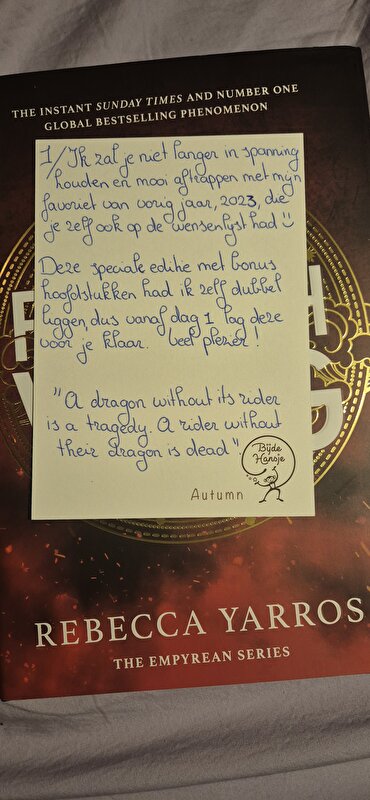 THE INSTANT SUNDAY TIMES AND NUMBER ONE
GLOBAL BESTSELLING PHENOMENON
1/ Ik zal je niet langer in spanning
houden en mooi aftrappen met mijn
favoriet van vorig jaar, 2023, die
je zelf ook op de wensenlyst had
Deze speciale editie met bonus
hoofdstukken had ik zelf dubbel
liggen, dus vanaf dag 1 lag deze
voor je klaar. Veel plezier!
"A dragon without its rider
is a tragedy. A rider without
their dragon is dead".
Bijde
Hansje
Autumn
REBECCA YARROS
THE EMPYREAN SERIES